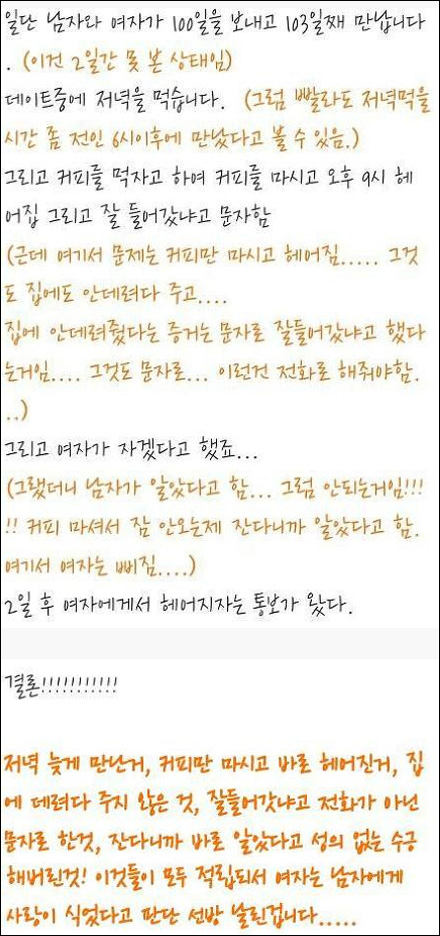 일단 남자와 여자가 100일을 보내고 103일째 만납니다
. (이건 2일간 못 본 상태임)
데이트중에 저녁을 먹습니다. (그럼 빨라도 저녁먹을
시간 좀 전인 6시이후에 만났다고 볼 수 있음.)
그리고 커피를 먹자고 하여 커피를 마시고 오후 9시 헤
어짐 그리고 잘 들어갔냐고 문자함
(근데 여기서 문제는 커피만 마시고 헤어짐..... 그것
도 집에도 안데려다 주고....
집에 안데려줬다는 증거는 문자로 잘들어갔냐고 했다
는거임.... 그것도 문자로... 이런건 전화로 해줘야함.
..)
그리고 여자가 자겠다고 했죠...
(그랬더니 남자가 알았다고 함... 그럼 안되는거임!!!
!! 커피 마셔서 잠 안오는제 잔다니까 알았다고 함.
여기서 여자는 삐짐....)
2일 후 여자에게서 헤어지자는 통보가 왔다.
결론!!!!!!!!!!!
저녁 늦게 만난거, 커피만 마시고 바로 헤어진거, 집
에 데려다 주지 않은 것, 잘들어갔냐고 전화가 아닌
문자로 한것, 잔다니까 바로 알았다고 성의 없는 수긍
해버린것! 이것들이 모두 적립되서 여자는 남자에게
사랑이 식었다고 판단 선방 날린겁니다.....